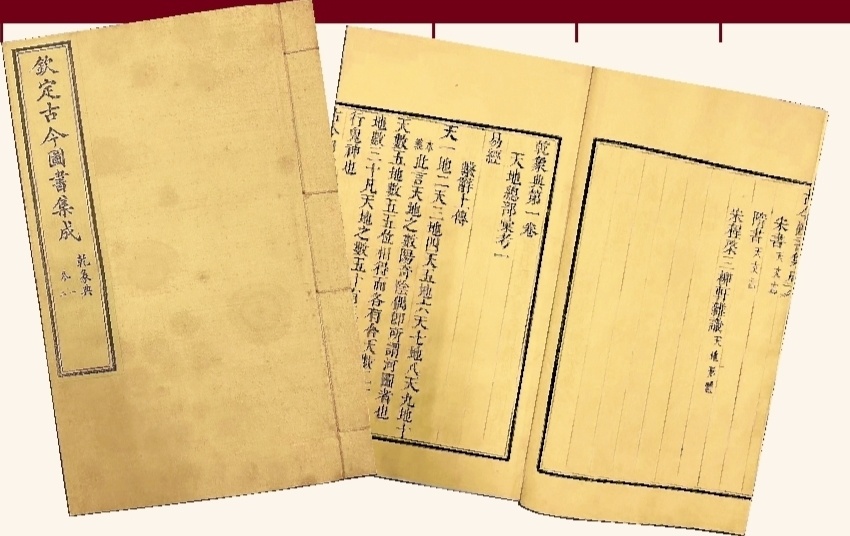 欽定古今圖書集成
乾象典
卷
朱書天文志
隋書天文志
朱程棨三柳軒雜識天地景體
乾象典第一卷
天地總部彙考一
易經
繫辭上傳
天一地二天三地四天五地六天七地八天九地十
本義此言天地之數陽奇陰偶卽所謂河圖者也
天數五地數五五位相得而各有合天數二
地數三十凡天地之數五十有
行鬼神也